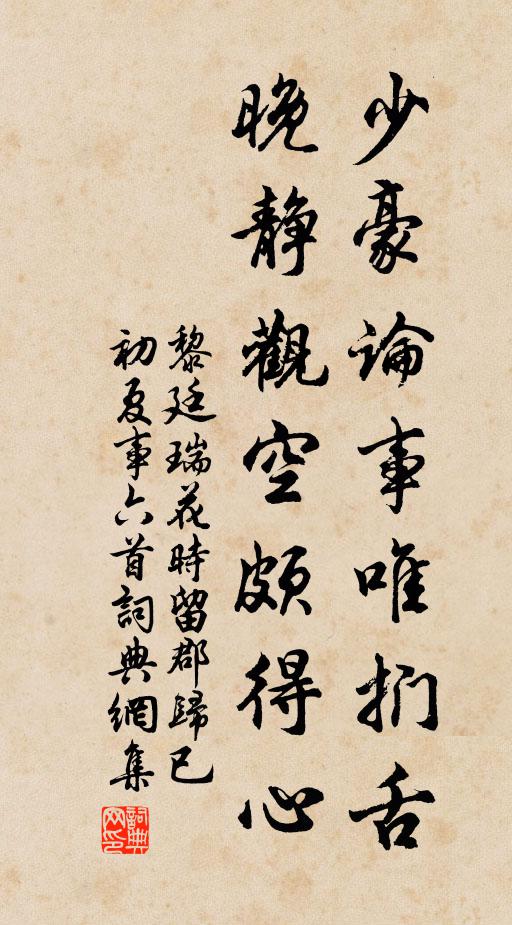 少豪論事唯捫舌
晚静觀空頗得心
黎廷瑞花時留郡歸已
初夏事六首詞典網集
詞典网印